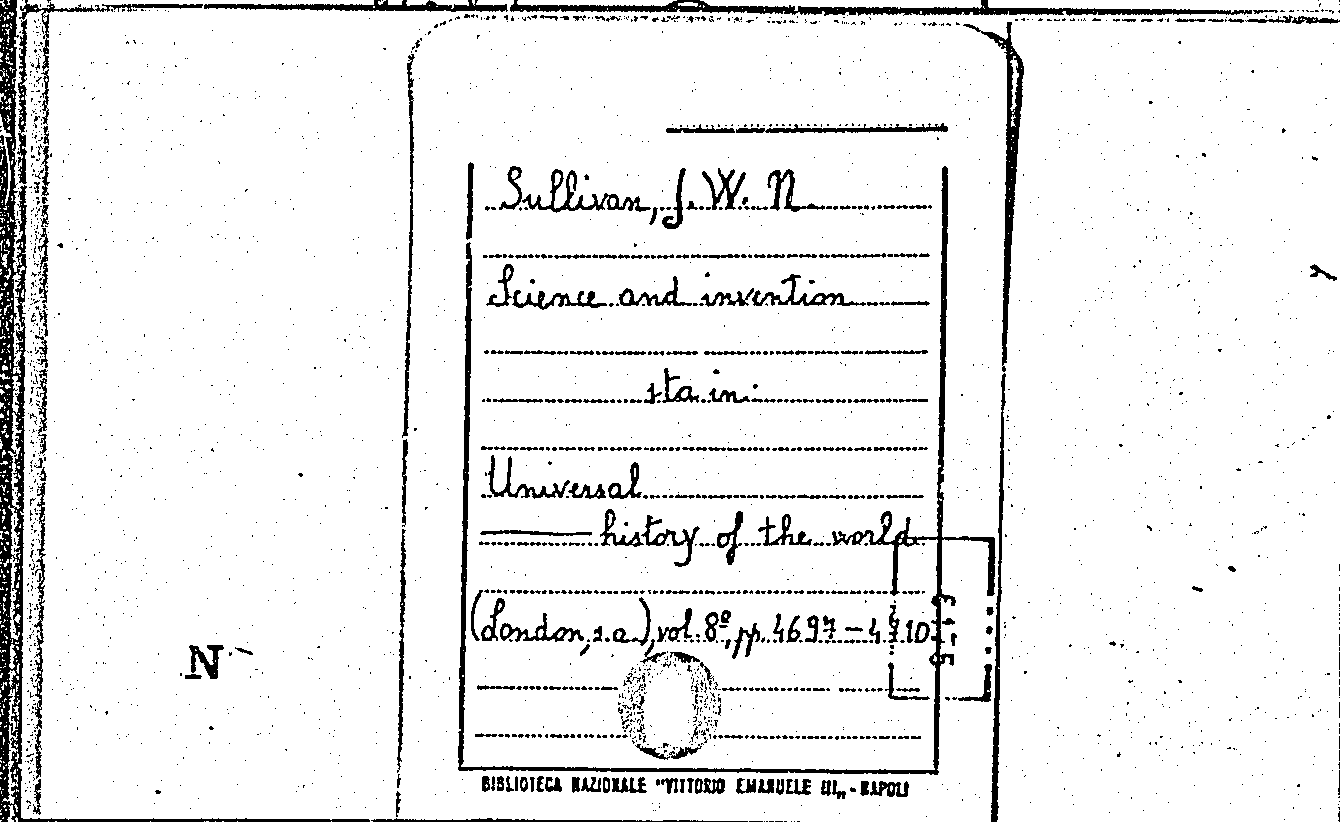 Sullivan, J. W. N.
Science and invention
sta in:
Universal
——— history of the world
(London, s.a.), vol. 8º, pp. 4697–4710
N
BIBLIOTECA NAZIONALE "VITTORIO EMANUELE III„ - NAPOLI